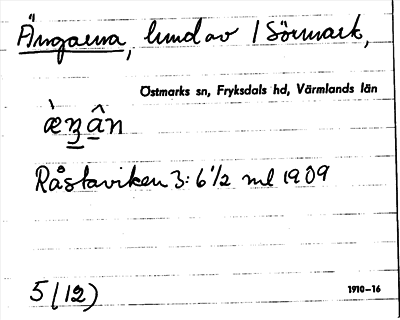 Ängarna, lund av 1 Sörmark,
Östmarks sn, Fryksdals hd, Värmlands län
æ̀ŋân
Råstaviken 3: 6 1/2 ml 1909
5 (12)
1910–16